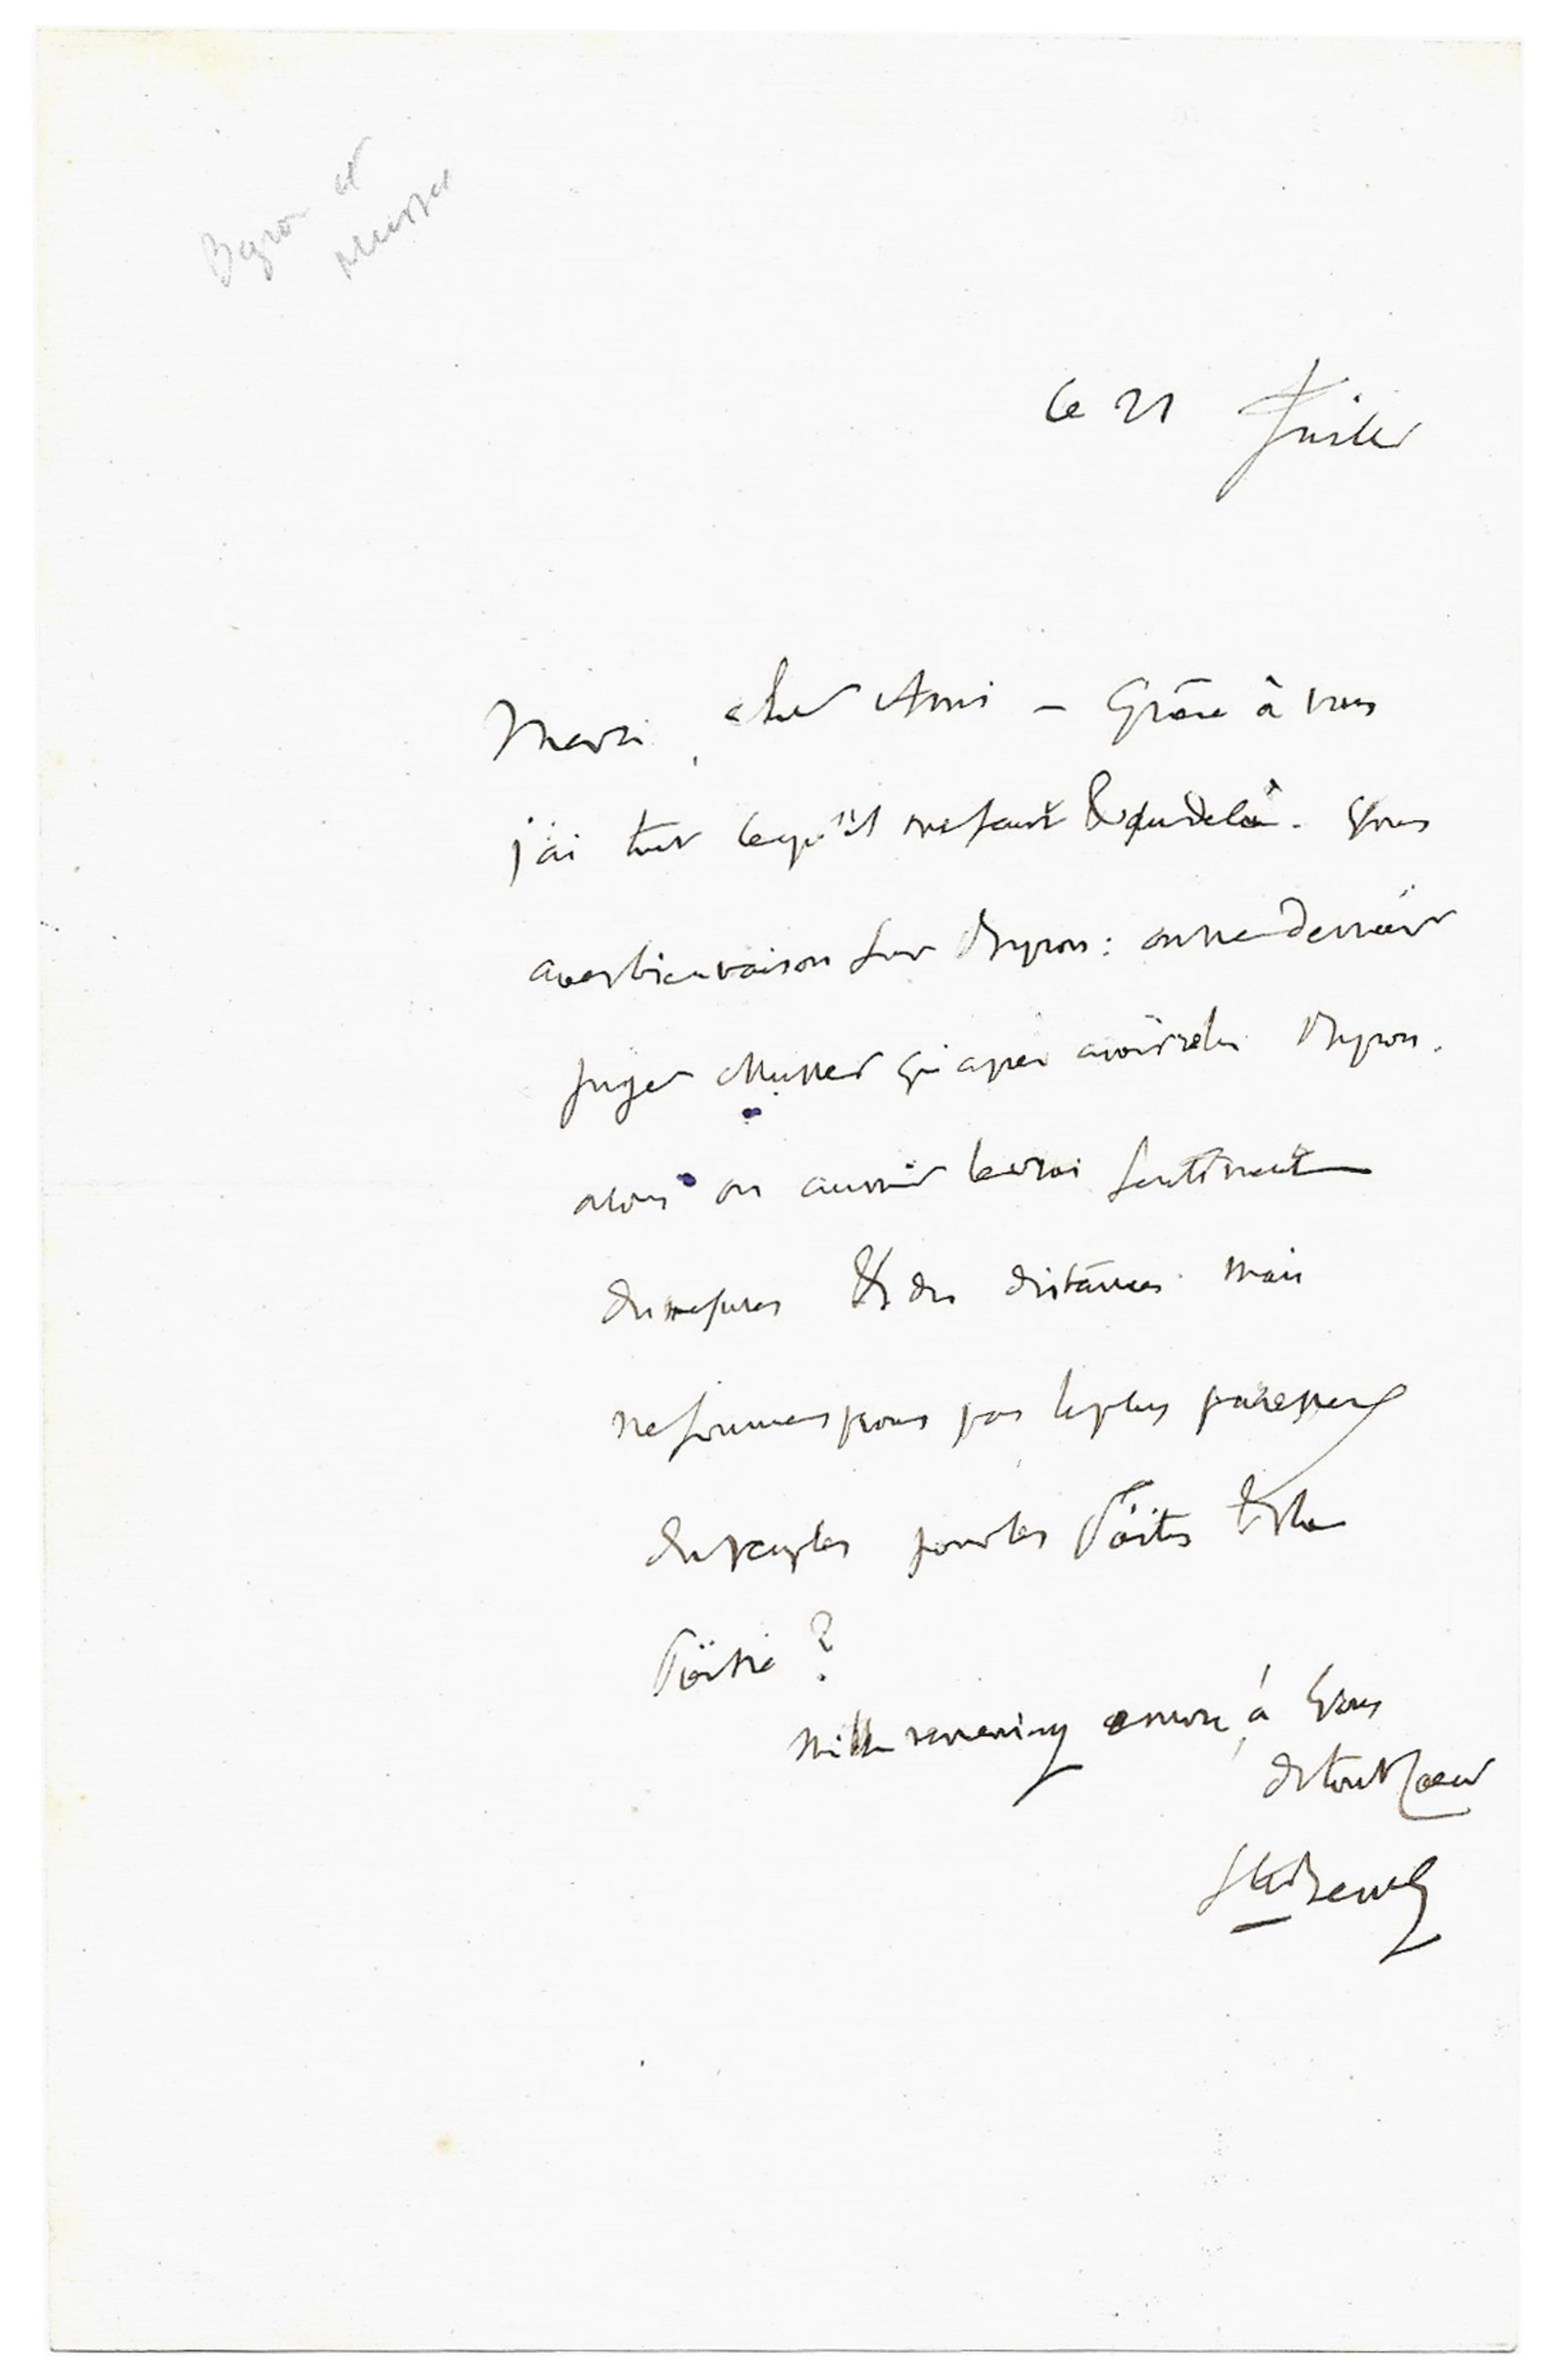 Byron et
Musset
Ce 21 Juillet
Merci, cher Ami — Grâce à vous
j'ai tout ce qu'il me faut & au delà. Vous
avez bien raison sur Byron : on ne devrait
juger Musset qu'après avoir relu Byron.
alors on aurait le vrai sentiment
des mesures & des distances. Mais
ne sommes nous pas le plus paresseux
des peuples pour les Poëtes & la
Poësie ?
Mille remerciem. encore, à Vous
de tout Coeur
Ste Beuve